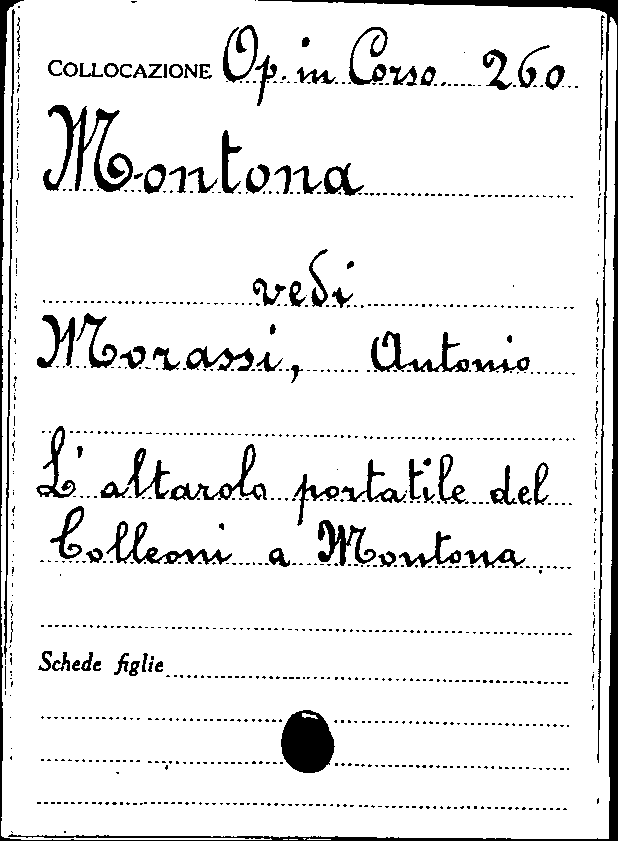 COLLOCAZIONE Op. in Corso. 260
Montona
vedi
Morassi, Antonio
L'altarolo portatile del
Colleoni a Montona
Schede figlie